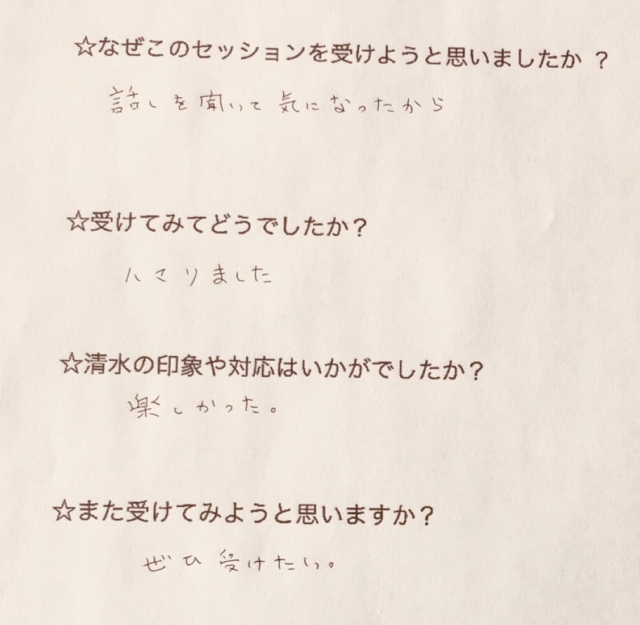 ☆なぜこのセッションを受けようと思いましたか？
話しを聞いて気になったから
☆受けてみてどうでしたか？
ハマりました
☆清水の印象や対応はいかがでしたか？
楽しかった。
☆また受けてみようと思いますか？
ぜひ受けたい。